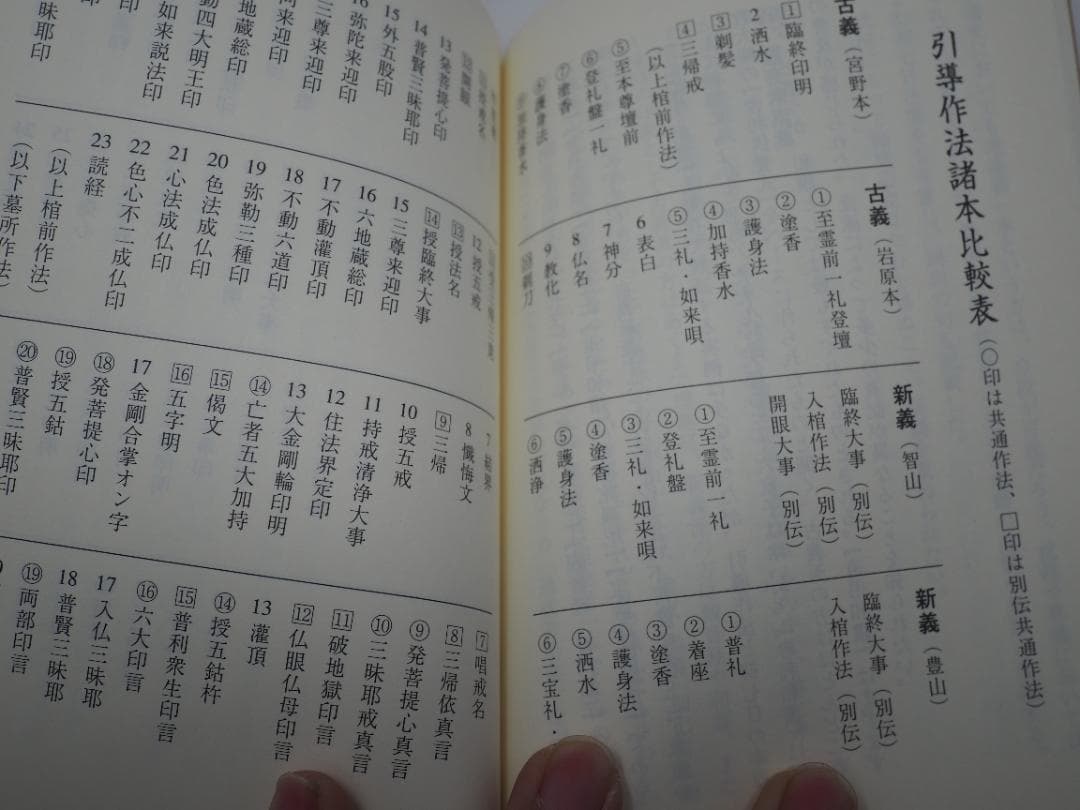 引導作法諸本比較表（〇印は共通作法、□印は別伝共通作法）
古義（宮野本）
1 臨終印明
2 洒水
3 剃髪
4 三帰戒
（以上棺前作法）
⑤至本尊壇前
⑥登礼盤一礼
⑦塗香
⑧護身法
古義（岩原本）
①至霊前一礼登壇
②塗香
③護身法
④加持香水
⑤三礼・如来唄
6 表白
7 神分
8 仏名
9 教化
10 剃刀
新義（智山）
臨終大事（別伝）
入棺作法（別伝）
開眼大事（別伝）
①至霊前一礼
②登礼盤
③三礼・如来唄
④塗香
⑤護身法
⑥洒浄
新義（豊山）
臨終大事（別伝）
入棺作法（別伝）
①普礼
②着座
③塗香
④護身法
⑤洒水
⑥三宝礼・
13 発菩提心印
14 普賢三昧耶印
15 外五股印
16 弥陀来迎印
三尊来迎印
来迎印
地蔵総印
動四大明王印
如来説法印
昧耶印
12 授五戒
⑬授法名
⑭授臨終大事
15 三尊来迎印
16 六地蔵総印
17 不動灌頂印
18 不動六道印
19 弥勒三種印
20 色法成仏印
21 心法成仏印
22 色心不二成仏印
23 読経
（以上棺前作法）
（以下墓所作法）
8 懺悔文
9 三帰
10 授五戒
11 持戒清浄大事
12 住法界定印
13 大金剛輪印明
⑭亡者五大加持
15 偈文
16 五字明
17 金剛合掌オン字
⑱発菩提心印
⑲授五鈷
⑳普賢三昧耶印
7 唱戒名
8 三帰依真言
⑨発菩提心真言
⑩三昧耶戒真言
11 破地獄印言
12 仏眼仏母印言
13 灌頂
⑭授五鈷杵
15 普利衆生印言
⑯六大印言
17 入仏三昧耶
18 普賢三昧耶
⑲両部印言